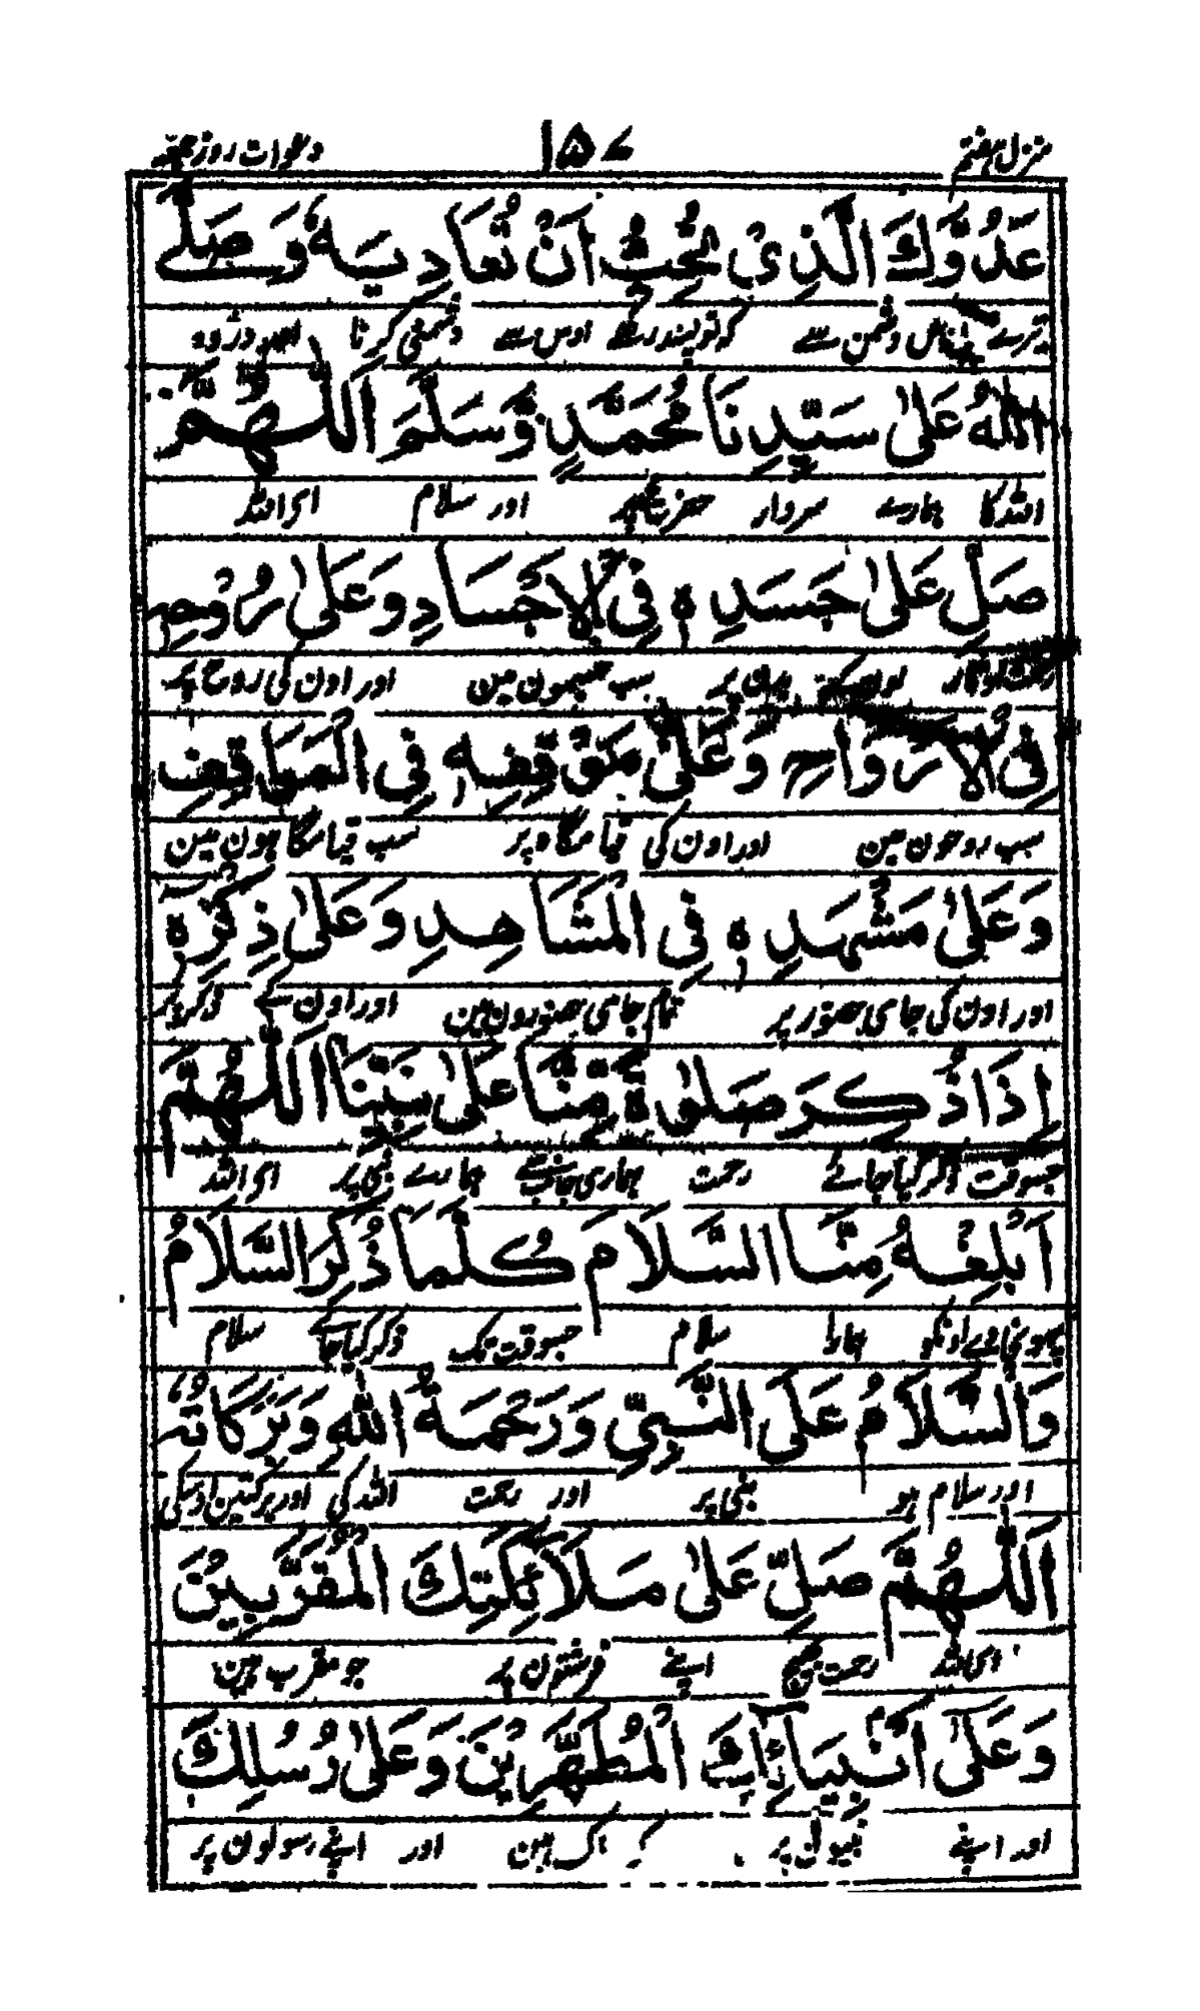 منزل ہفتم ١٥٧ دعوات روز جمعہ
عَدُوِّكَ الَّذِيْ تُحِبُّ اَنْ تُعَادِيَهٗ وَصَلَّى
تیرے دشمن سے کہ تو پسند رکھے اوس سے دشمنی کرنا اور درود
اللهُ عَلٰى سَيِّدِنَا مُحَمَّدٍ وَّسَلَّمَ اَللّٰهُمَّ
اللہ کا ہمارے سردار حضرت محمد پر اور سلام ای اللہ
صَلِّ عَلٰى جَسَدِهٖ فِى الْاَجْسَادِ وَعَلٰى رُوْحِهٖ
بدن پر سب جسمون مین اور اون کی روح پر
فِى الْاَرْوَاحِ وَعَلٰى مَوْقِفِهٖ فِى الْمَوَاقِفِ
سب روحون مین اور اون کی قیامگاہ پر سب قیامگاہون مین
وَعَلٰى مَشْهَدِهٖ فِى الْمَشَاهِدِ وَعَلٰى ذِكْرِهٖ
اور اون کی جای حضور پر تمام جای حضورون مین اور اون کے ذکر پر
اِذَا ذُكِرَ صَلٰوةً مِّنَّا عَلٰى نَبِيِّنَا اَللّٰهُمَّ
جسوقت ذکر کیا جائے رحمت ہماری جانب سے ہمارے نبی پر ای اللہ
اَبْلِغْهُ مِنَّا السَّلَامَ كُلَّمَا ذُكِرَ السَّلَامُ
پہونچا دے اونکو ہمارا سلام جسوقت تک ذکر کیا جائے سلام
وَالسَّلَامُ عَلَى النَّبِيِّ وَرَحْمَةُ اللهِ وَبَرَكَاتُهٗ
اور سلام ہو نبی پر اور رحمت اللہ کی اور برکتین اوسکی
اَللّٰهُمَّ صَلِّ عَلٰى مَلَآئِكَتِكَ الْمُقَرَّبِيْنَ
ای اللہ رحمت بھیج اپنے فرشتون پر جو مقرب ہین
وَعَلٰى اَنْبِيَآئِكَ الْمُطَهَّرِيْنَ وَعَلٰى رُسُلِكَ
اور اپنے نبیون پر پاک ہین اور اپنے رسولون پر